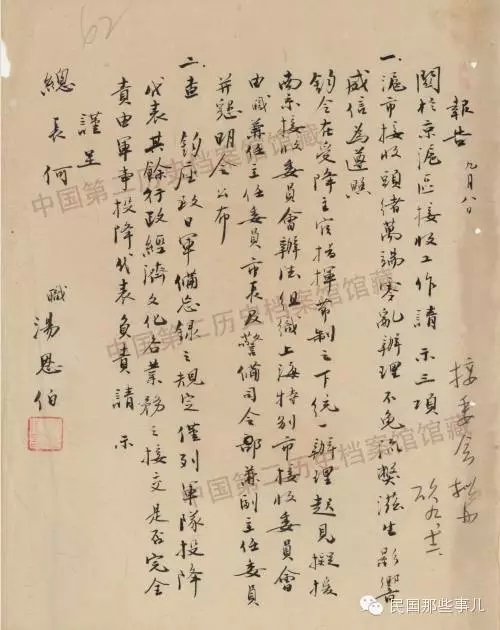 62
報告 九月八日
關於京滬區接收工作請示三項
接委會
一、滬市接收頭緒萬端零亂辦理不免流弊滋生影響
威信為遵照
鈞令在受降主官指揮節制之下統一辦理起見擬援
南京接收委員會辦法組織上海特別市接收委員會
由職兼任主任委員市長及警備司令部兼副主任委員
并懇明令公布
二、查 鈞座致日軍備忘錄之規定僅列軍隊投降
代表其餘行政經濟文化各業務之接交是否完全
責由軍事投降代表負責請示
謹呈
總長何
職 湯恩伯
中国第二历史档案馆馆藏
中国第二历史档案馆馆藏
中国第二历史档案馆馆藏
民国那些事儿